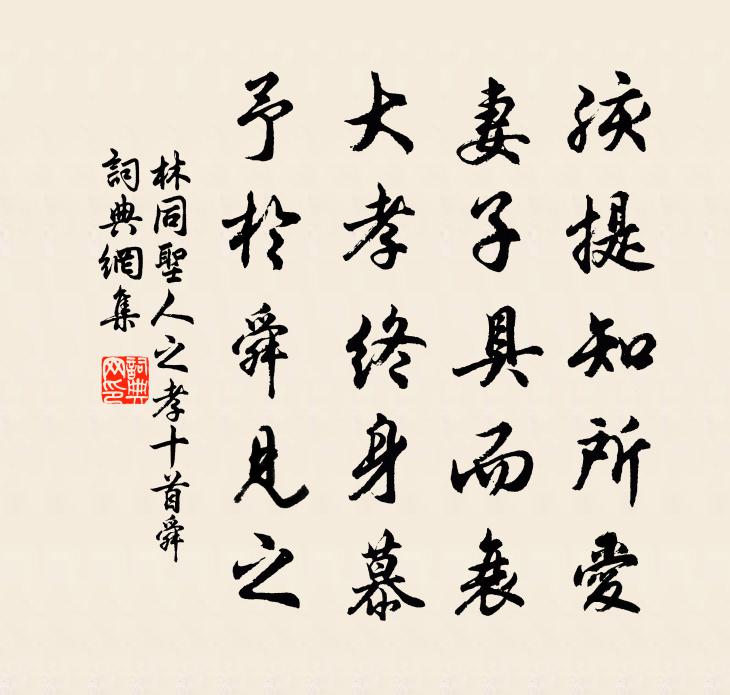 孩提知所愛
妻子具而衰
大孝終身慕
予於舜見之
林同聖人之孝十首舜
詞典網集
詞典
网印